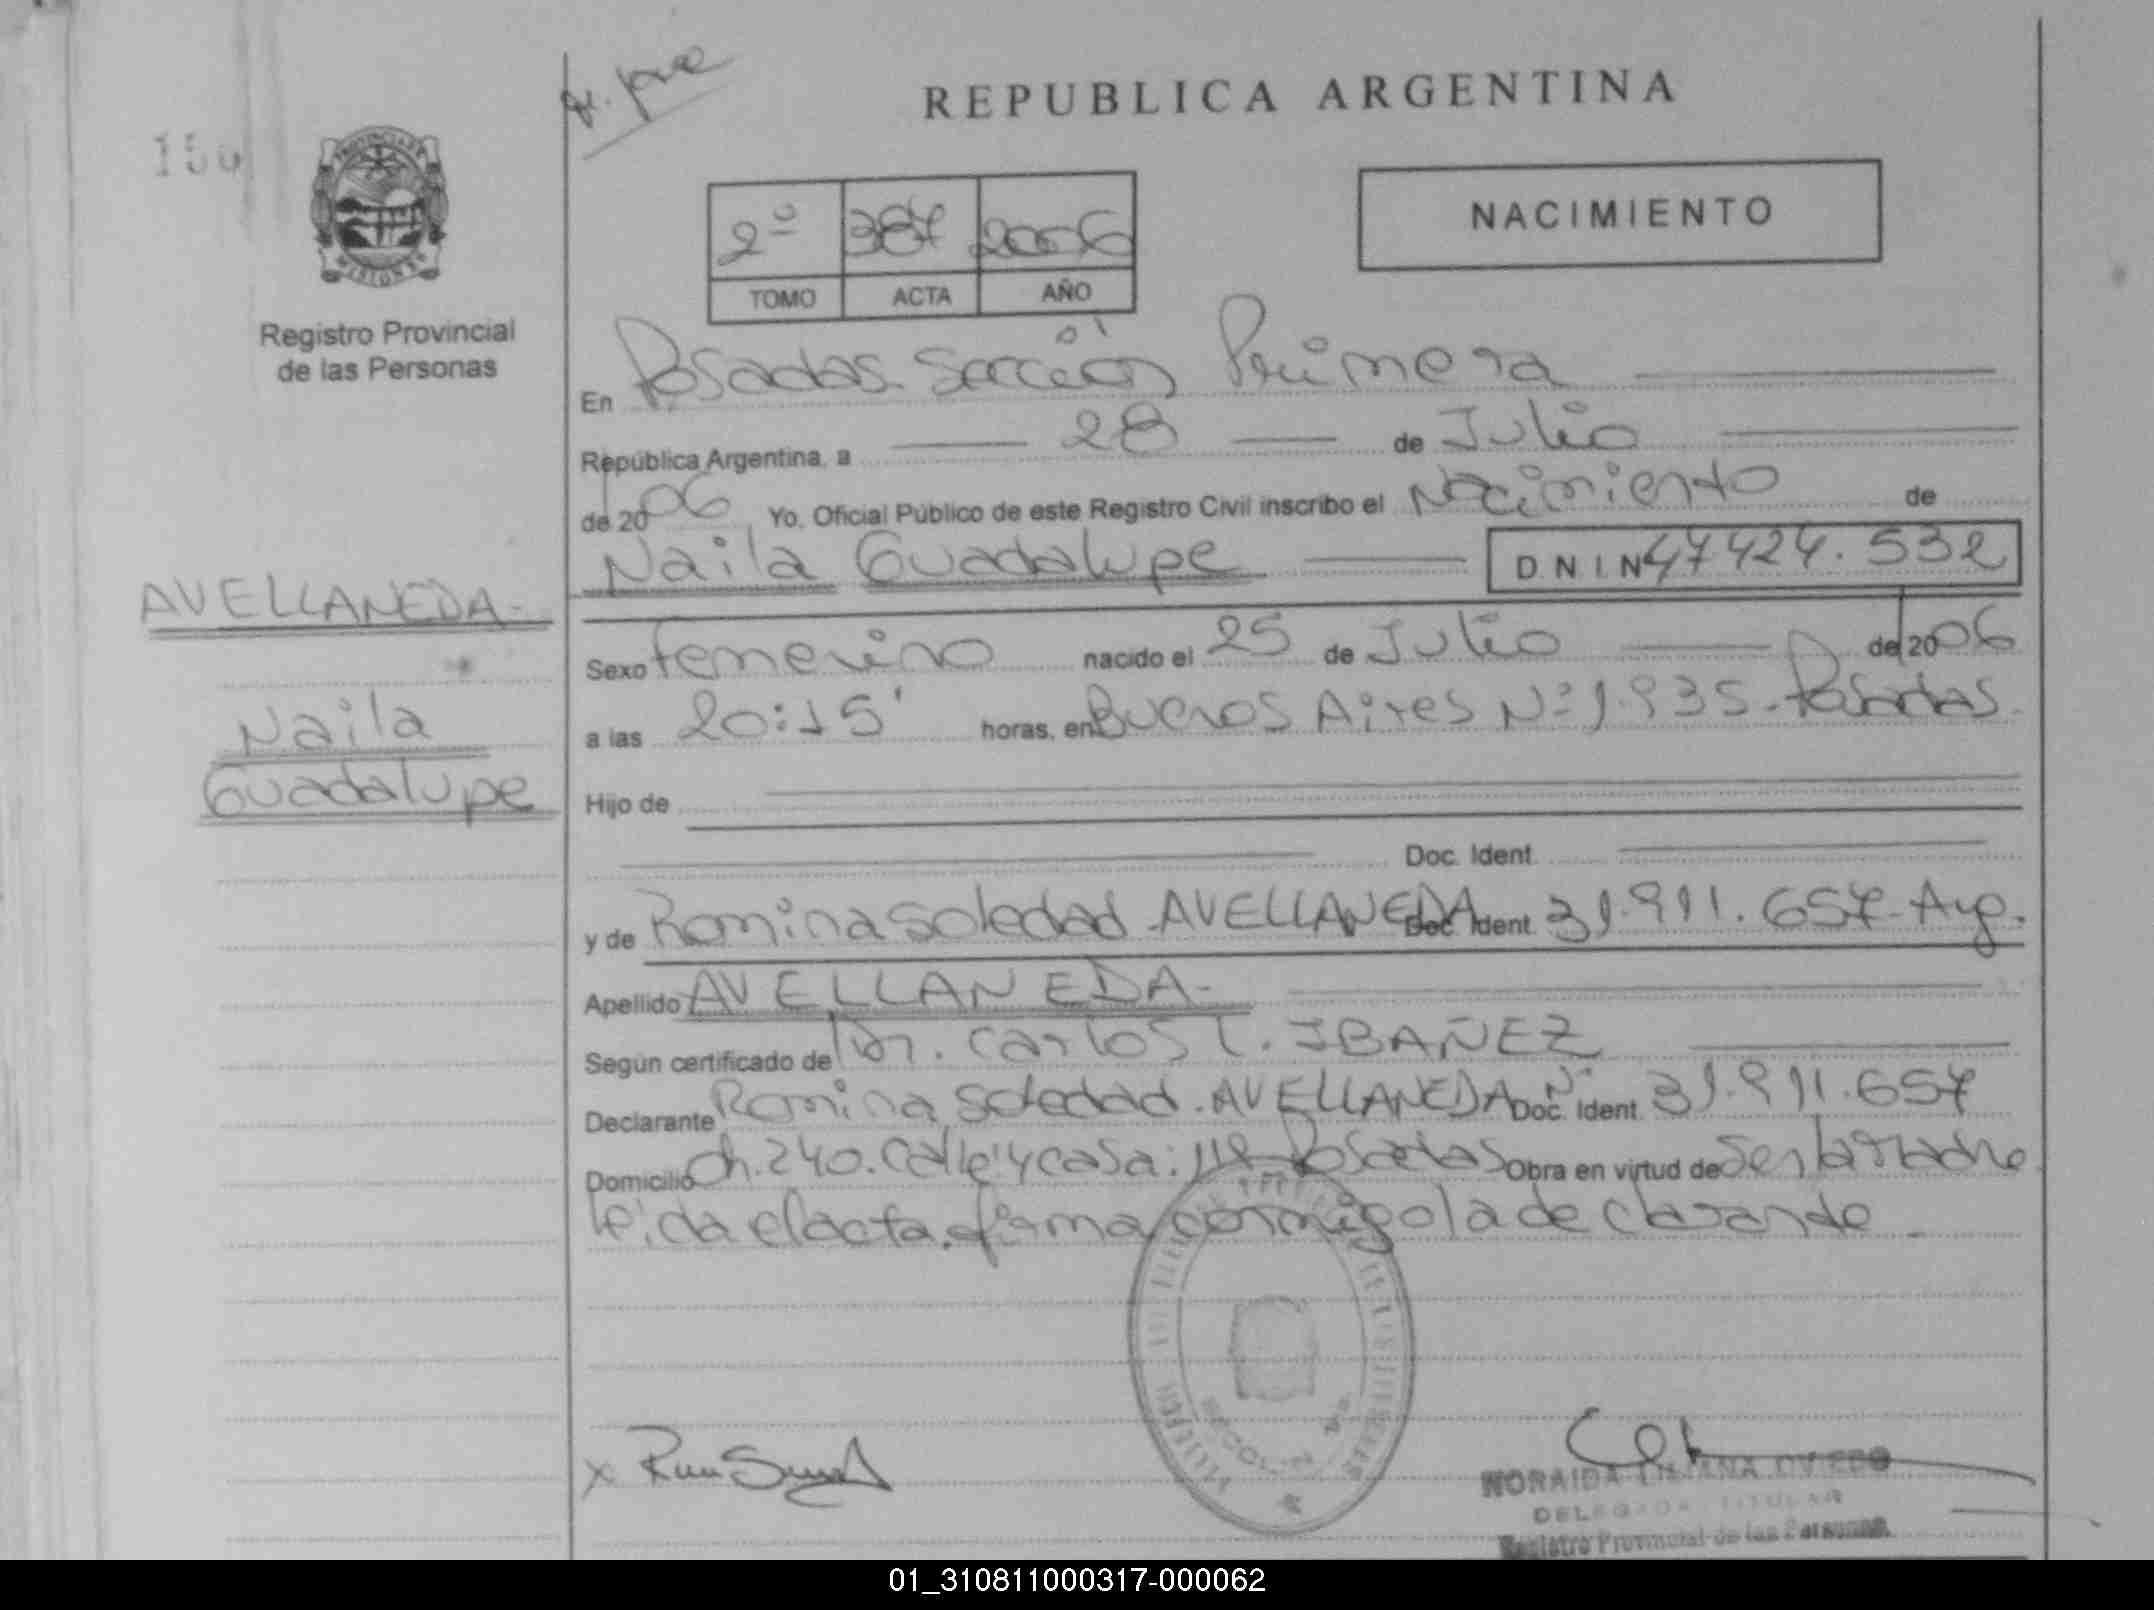 REPUBLICA ARGENTINA
PROVINCIA DE
MISIONES
Registro Provincial
de las Personas
2º 387 2006
TOMO ACTA AÑO
NACIMIENTO
En Posadas Sección Primera
República Argentina, a 28 de Julio
de 2006 Yo, Oficial Público de este Registro Civil inscribo el Nacimiento de
Naila Guadalupe D N I N 47424.532
AVELLANEDA-
Naila
Guadalupe
Sexo Femenino nacido el 25 de Julio de 2006
a las 20:15' horas, en Buenos Aires Nº 1.935. Posadas
Hijo de
Doc. Ident.
y de Romina Soledad AVELLANEDA Doc. Ident. 31.911.657- Arg.
Apellido AVELLANEDA-
Según certificado de Dr. Carlos C. IBAÑEZ
Declarante Romina Soledad. AVELLANEDA Doc. Ident. Nº 31.911.657
Domicilio Ch. 240. Calle 4 casa: 118 Posadas Obra en virtud de Ser la Madre
leida el acta, firma conmigo la declarante.
NORAIDA LILIANA OVIEDO
DELEGADA TITULAR
Registro Provincial de las Personas
01_310811000317-000062